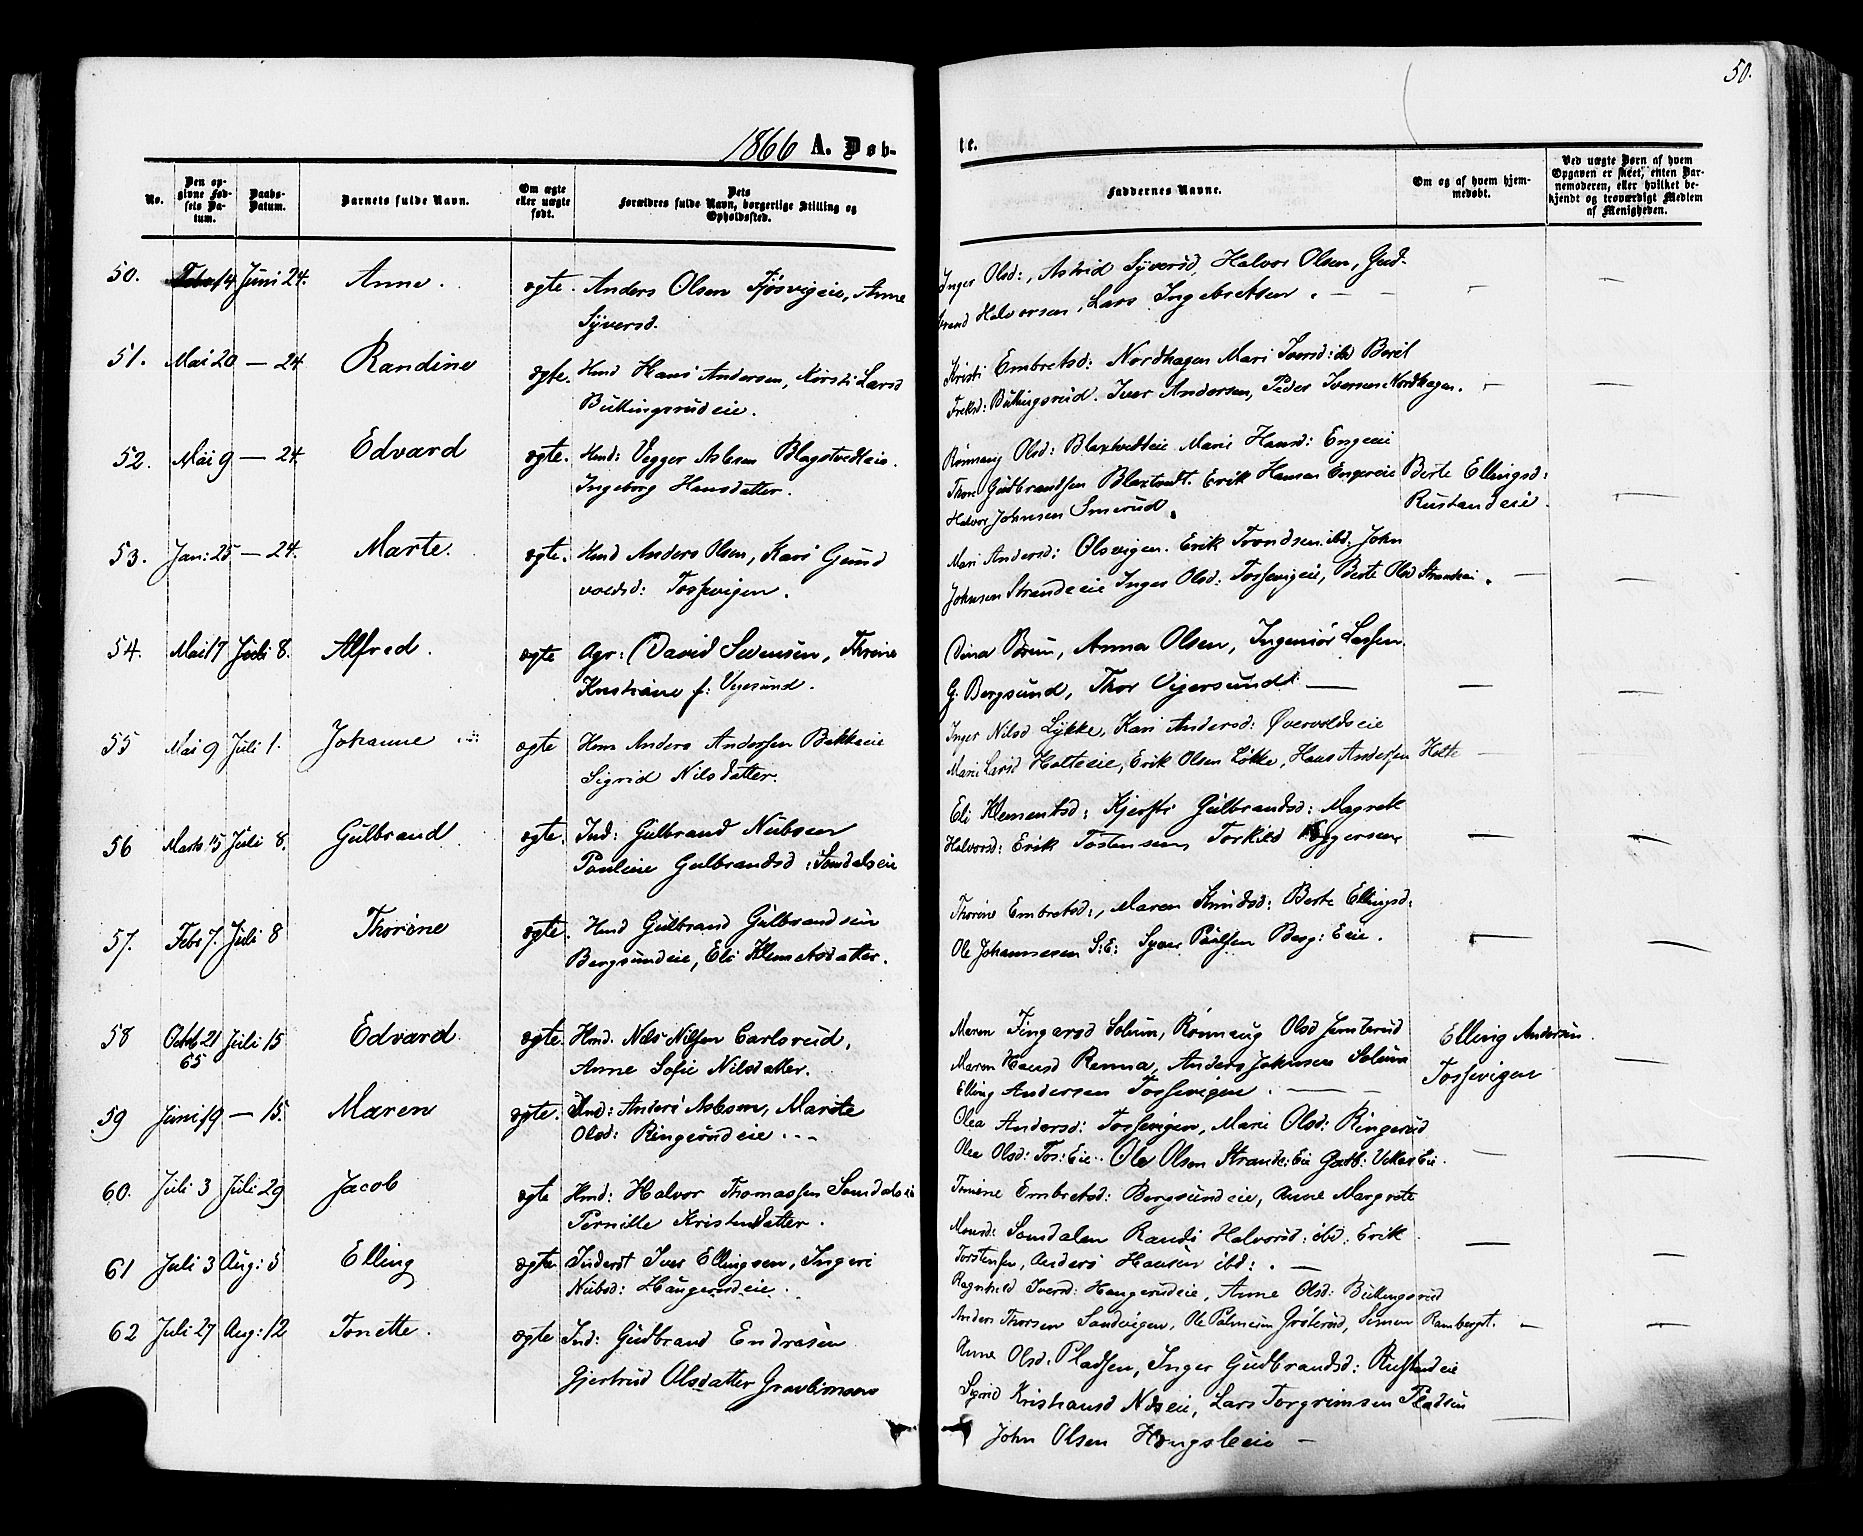 50.
1866 A. Døb-
te.
No.
Den op-
givne Fød-
sels Da-
tum.
Daabs-
Datum.
Barnets fulde Navn.
Om ægte
eller uægte
født.
Dets
Forældres fulde Navn, borgerlige Stilling og
Opholdssted.
Faddernes Navne.
Om og af hvem hjem-
medøbt.
Ved uægte Børn af hvem
Opgaven er skeet, enten Bar-
nemoderen, eller hvilket be-
kjendt og troværdigt Medlem
af Menigheden.
50. 14 Juni 24. Anne. ægte. Anders Olsen Fjösvigeie, Anne
Syversd.
Inger Olsd:, Astrid Syversd, Halvor Olsen, Gud-
brand Halvorsen, Lars Ingebretsen. —
51. Mai 20 — 24 Randine ægte. Hmd Hans Andersen, Kersti Larsd
Bullingsrudeie.
Kristi Embretsd: Nordhagen Mari Iversd: ibd Berit
Bullingsrud. Iver Andersen, Peder Iversen Nordhagen.
52. Mai 9 — 24. Edvard ægte. Hmd: Vegger Aslesen Blagstvedteie.
Ingeborg Hansdatter.
Rönnaug Olsd: Blaxtvedteie Marie Hansd: Engereie
Thor Gudbrandsen Blaxtvedt. Erik Hansen Engereie
Halvor Johnsen Smerud.
Berte Ellingsd:
Rustandeie.
53. Jan: 25 — 24. Marte. ægte. Hmd Anders Olsen, Kari Gund
voldsd: Tossevigen.
Mari Andersd: Olsvigen. Erik Trondsen ibd. John
Johnsen Strandeeie Inger Olsd: Tossevigeie, Berte Olsd Strandeie.
54. Mai 17 Juli 8. Alfred. ægte Agr: David Svensen, Threne
Kristiane f: Vigesund.
Dina Brun, Anna Olsen, Ingeniör Lassen
G. Bergsund, Thor Vigersund. —
55 Mai 9 Juli 1. Johanne ægte Hmd Anders Andersen Bekkeeie
Sigrid Nilsdatter.
Inger Nilsd Lykke, Kari Andersd: Øvervoldseie
Marie Larsd Holteeie, Erik Olsen Løkke, Hans Andersen Holte
56 Marts 15 Juli 8. Gulbrand ægte. Ind: Gulbrand Nubsen
Pauline Gulbrandsd: Sondalseie
Eli Klemetsd: Kjersti Gulbrandsd: Magrete
Halvorsd: Erik Tostensen, Torkild
57. Febr 7. Juli 8 Thorine ægte. Hmd Gulbrand Gulbrandsen
Bergsundeie, Eli Klemetsdatter.
Thorine Embretsd:, Maren Knudsd: Berte Ellingsd:
Ole Johannesen S: E: Syver Paulsen Berg: Eie.
58 Octob 21 65 Juli 15 Edvard ægte. Hmd. Nels Nilsen Carlsrud,
Anne Sofie Nilsdatter.
Maren Fingarsd Solum, Rönnaug Olsd Jemterud
Maren Hansd Renna, Anders Johnsen Solum
Elling Andersen Tossevigen. —
Elling Andersen.
Tossevigen
59 Juni 19 — 15. Maren ægte. Ind: Anders Aslesen, Marite
Olsd: Ringerudeie.
Olea Andersd: Tossevigen, Marie Olsd: Ringerud
Olea Olsd: Tos: Eie. Ole Olsen Strande: Eie
60. Juli 3 Juli 29 Jacob ægte Hmd: Halvor Thomassen Sondalseie
Pernille Kristensdatter.
Embretsd: Bergsundeie, Anne Margrete
Monsd: Sondalen Randi Halvorsd: ibd: Erik
Torstensen, Anders Hansen ibd:. —
61 Juli 3 Aug: 5 Elling ægte Inderst Iver Ellingsen, Ingeri
Nubsd: Haugerudeie.
Ragnhild Iversd: Haugerudeie, Anne Olsd: Bullingsrud
Anders Thorsen Sandvigen, Ole Palmesen Grøterud, Simen Ramberget.
62 Juli 27 Aug: 12 Tonette. ægte Ind: Gudbrand Endresen
Gjertrud Olsdatter
Anne Olsd. Pladsen, Inger Gudbrandsd: Rustandeie
Sigrid Kristiansd Næseie, Lars Torgrimsen Pladsen
John Olsen Haugsleeie —